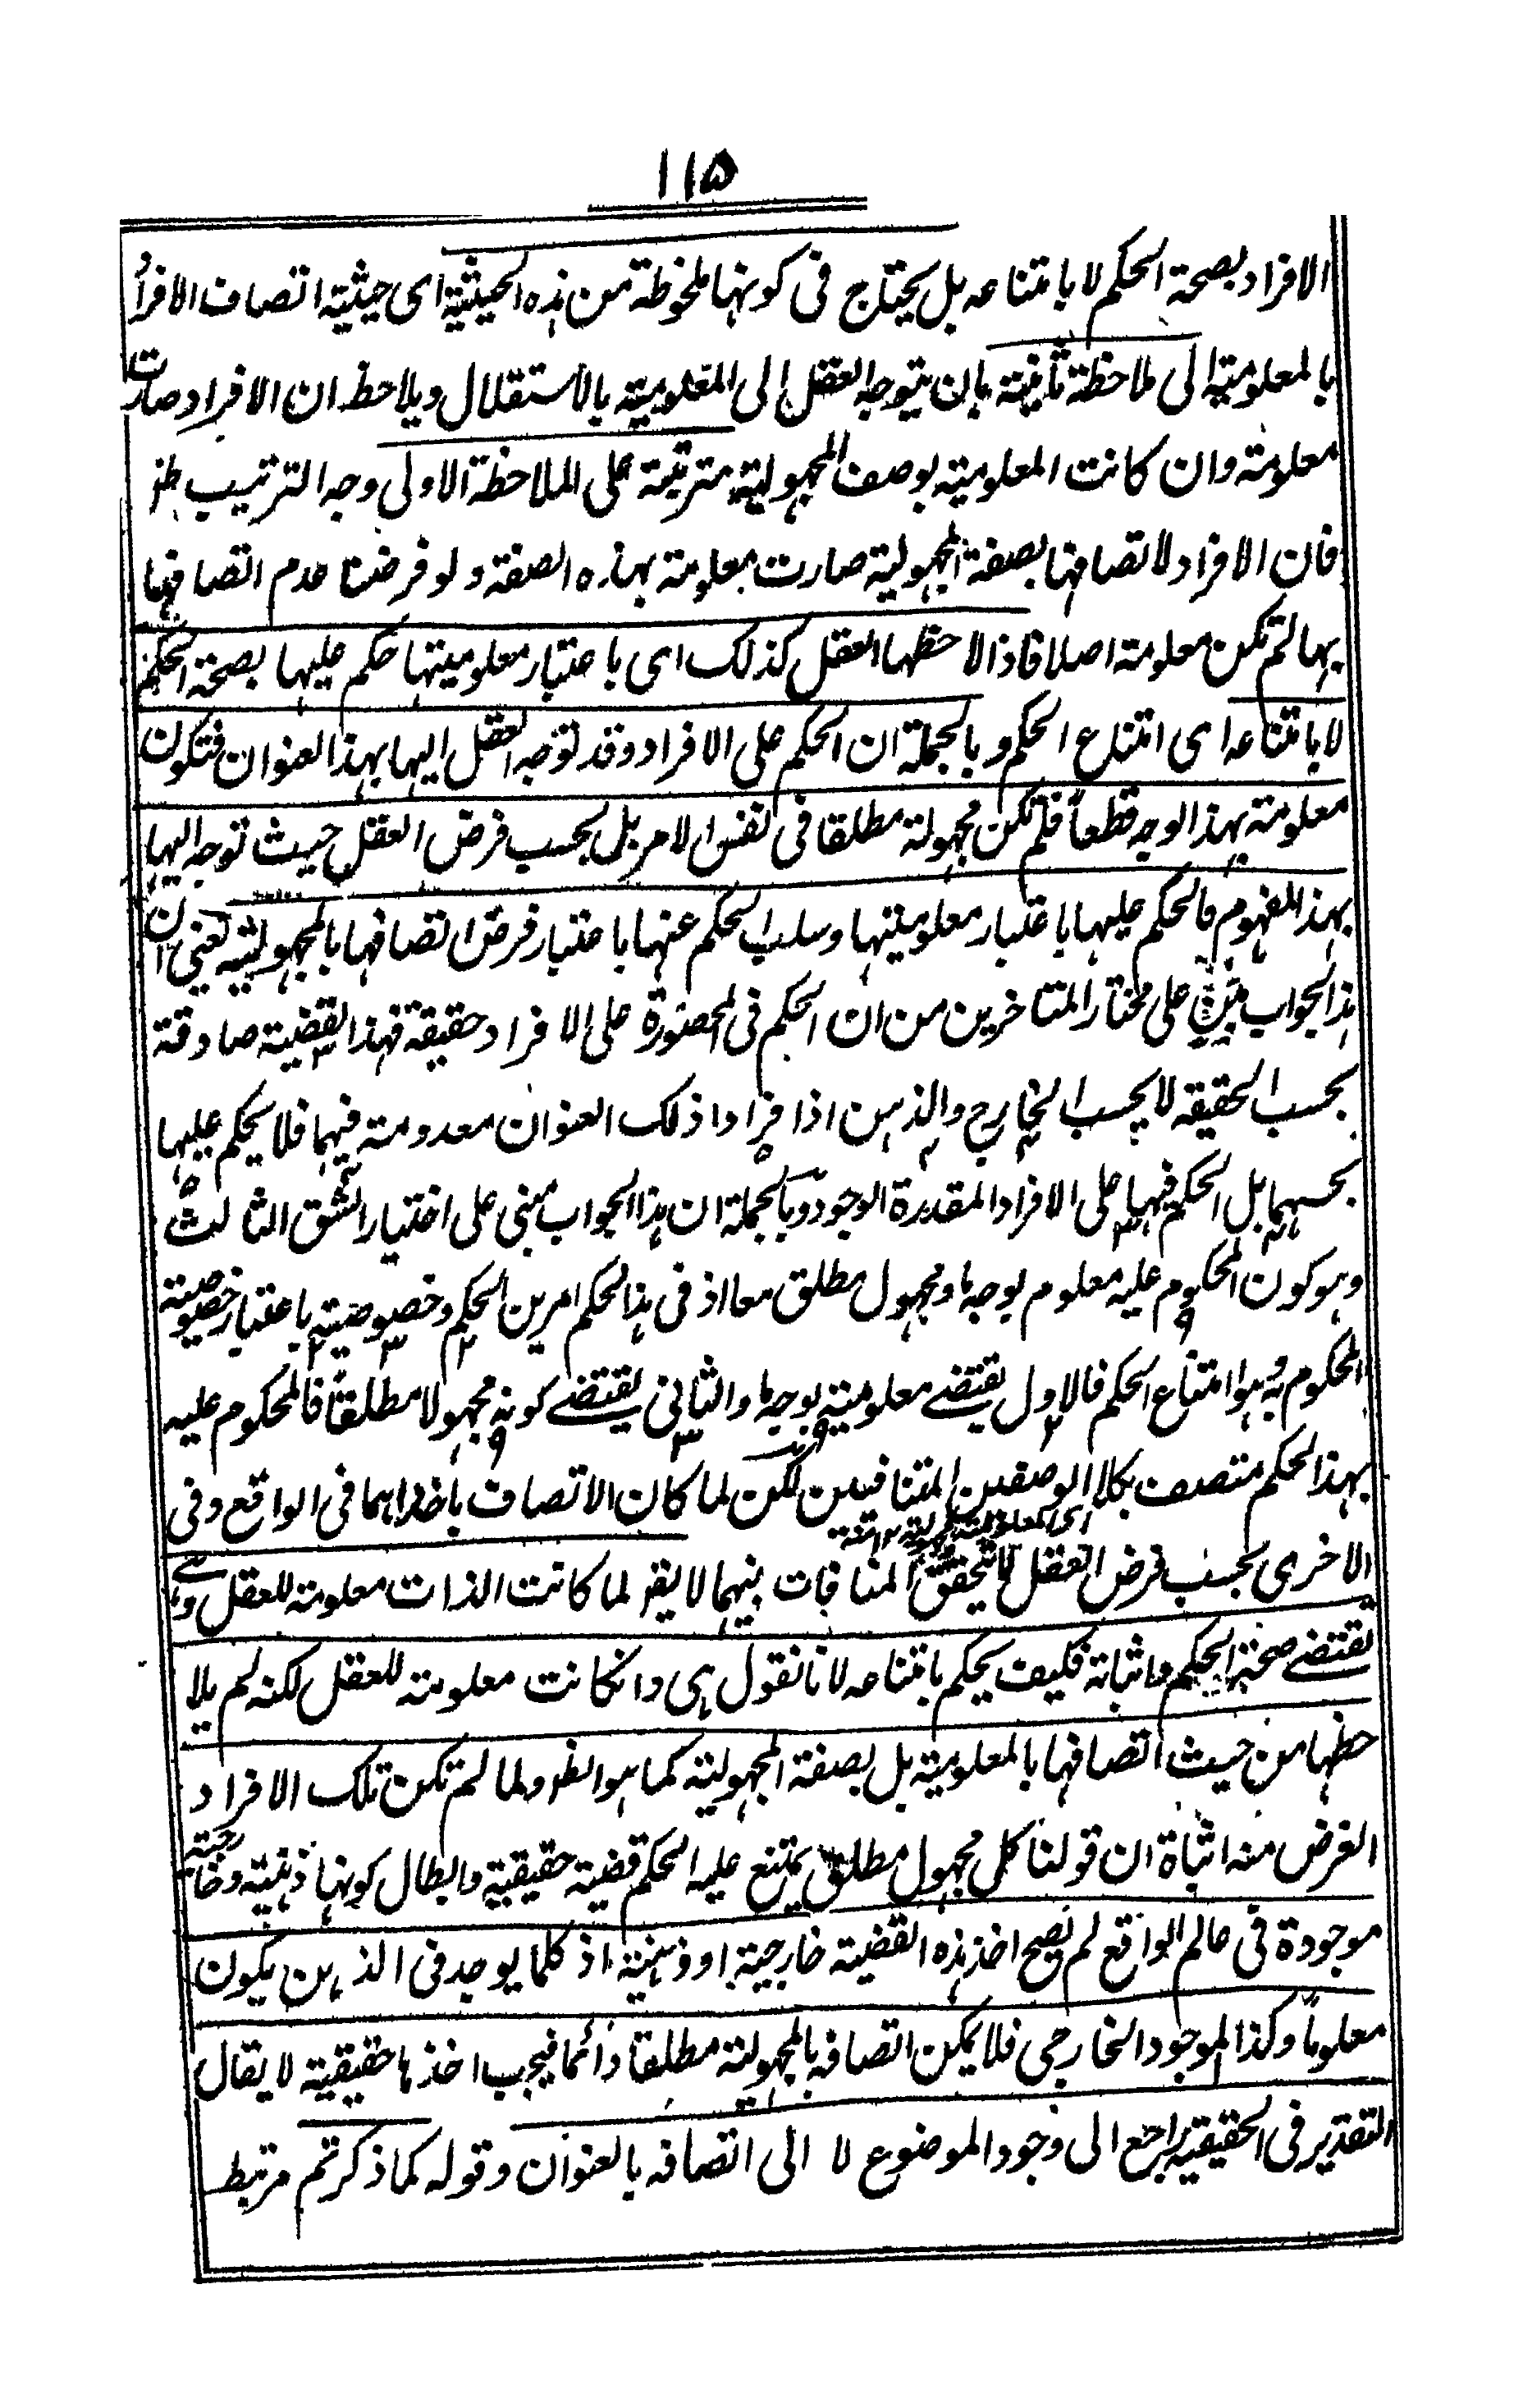 ١١۵
الافراد بصحة الحكم لا بامتناعه بل يحتاج فى كونها ملحوظة من هذه الحيثية اى حيثية اتصاف الافراد
بالمعلومية الى ملاحظة ثانية بان يتوجه العقل الى المعلومية بالاستقلال ويلاحظ ان الافراد صارت
معلومة وان كانت المعلومية بوصف المجهولية مترتبة على الملاحظة الاولى وجه الترتيب ظ
فان الافراد لاتصافها بصفة المجهولية صارت معلومة بهذه الصفة ولو فرضنا عدم اتصافها
بها لم تكن معلومة اصلا فاذا لاحظها العقل كذلك اى باعتبار معلوميتها حكم عليها بصحة الحكم
لا بامتناعه اى امتناع الحكم وبالجملة ان الحكم على الافراد وقد توجه العقل اليها بهذا العنوان فتكون
معلومة بهذا الوجه قطعاً فلم تكن مجهولة مطلقا فى نفس الامر بل بحسب فرض العقل حيث توجه اليها
بهذا المفهوم فالحكم عليها باعتبار معلوميتها وسلب الحكم عنها باعتبار فرض اتصافها بالمجهولية يعنى ان
هذا الجواب مبنى على مختار المتاخرين من ان الحكم فى المحصورة على الافراد حقيقة فهذا القضية صادقة
بحسب الحقيقه لا بحسب الخارج والذهن اذا فراد ذلك العنوان معدومة فيهما فلا يحكم عليها
بحسبهما بل الحكم فيها على الافراد المقدرة الوجود وبالجملة ان هذا الجواب مبنى على اختيار الشق الثالث
وهو كون المحكوم عليه معلوم بوجه ما ومجهول مطلق معا اذ فى هذا الحكم امرين الحكم وخصوصية باعتبار خصوصية
المحكوم به وهو امتناع الحكم فالاول يقتضے معلومية بوجه ما والثانى يقتضے كونه مجهولا مطلقاً فالمحكوم عليه
بهذا الحكم متصف بكلا الوصفين المتنافيين لكن لما كان الاتصاف باحدهما فى الواقع وفى
الاخرى بحسب فرض العقل لا يتحقق المنافات بينهما لا يقر لما كانت الذات معلومة للعقل وهى
يقتضے صحة الحكم واثباته فكيف يحكم بامتناعه لانا نقول هى وانكانت معلومة للعقل لكنه لم يلا
حظها من حيث اتصافها بالمعلومية بل بصفة المجهولية كما هو الظ ولما لم تكن تلك الافراد
الغرض منه اثباة ان قولنا كل مجهول مطلق يمتنع عليه الحكم قضية حقيقية وابطال كونها ذهنية وخارجية
موجودة فى عالم الواقع لم يصح اخذ هذه القضية خارجية او ذهنية اذ كلما يوجد فى الذهن يكون
معلوماً وكذا الموجود الخارجى فلا يمكن اتصافه بالمجهولية مطلقا دائما فيجب اخذها حقيقية لا يقال
التقدير فى الحقيقية يراجع الى وجود الموضوع لا الى اتصافه بالعنوان وقوله كما ذكرتم مرتبط